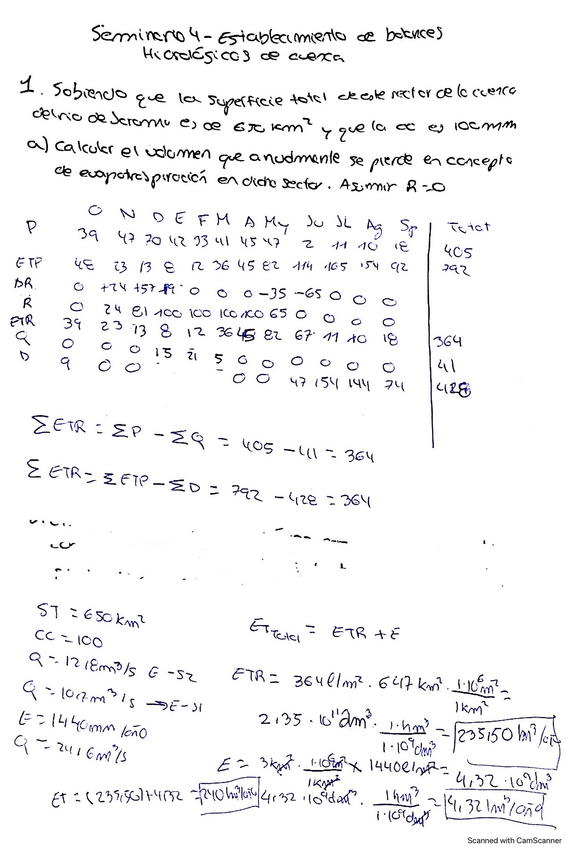 Seminario 4 - Establecimiento de balances
Hidrológicos de cuenca
1. Sabiendo que la superficie total de este sector de la cuenca
del rio de Jarama es de 650 km² y que la CC es 100 mm
a) Calcular el volumen que anualmente se pierde en concepto
de evapotranspiración en dicho sector. Asumir R=0
O N D E F M A My Ju JL Ag Sp Total
P 39 47 70 42 33 41 45 47 2 11 10 18 405
ETP 48 23 13 8 12 36 45 82 114 165 154 92 792
DR 0 +24 +57 19 0 0 0 -35 -65 0 0 0
R 0 24 81 100 100 100 100 65 0 0 0 0
ETR 39 23 13 8 12 36 45 82 67 11 10 18 364
Q 0 0 0 15 21 5 0 0 0 0 0 0 41
D 9 0 0 0 0 47 154 144 74 428
ΣETR = ΣP - ΣQ = 405 - 41 = 364
ΣETR = ΣETP - ΣD = 792 - 428 = 364
ST = 650 km²
CC = 100
Q = 12,8 m³/s E-52
Q = 10,7 m³/s → E-51
E = 1440 mm/año
Q = 24,6 m³/s
ET Total = ETR + E
ETR = 364 l/m² · 647 km² · 1·10⁶ m² / 1 km² =
2,35 · 10¹¹ dm³ · 1 hm³ / 1·10⁹ dm³ = 235,50 hm³/año
E = 3 km² · 1·10⁶ m² / 1 km² × 1440 l/m² = 4,32 · 10⁹ dm³
4,32 · 10⁹ dm³ · 1 hm³ / 1·10⁹ dm³ = 4,32 hm³/año
ET = (235,50) + 4,32 = 240 hm³/año
Scanned with CamScanner